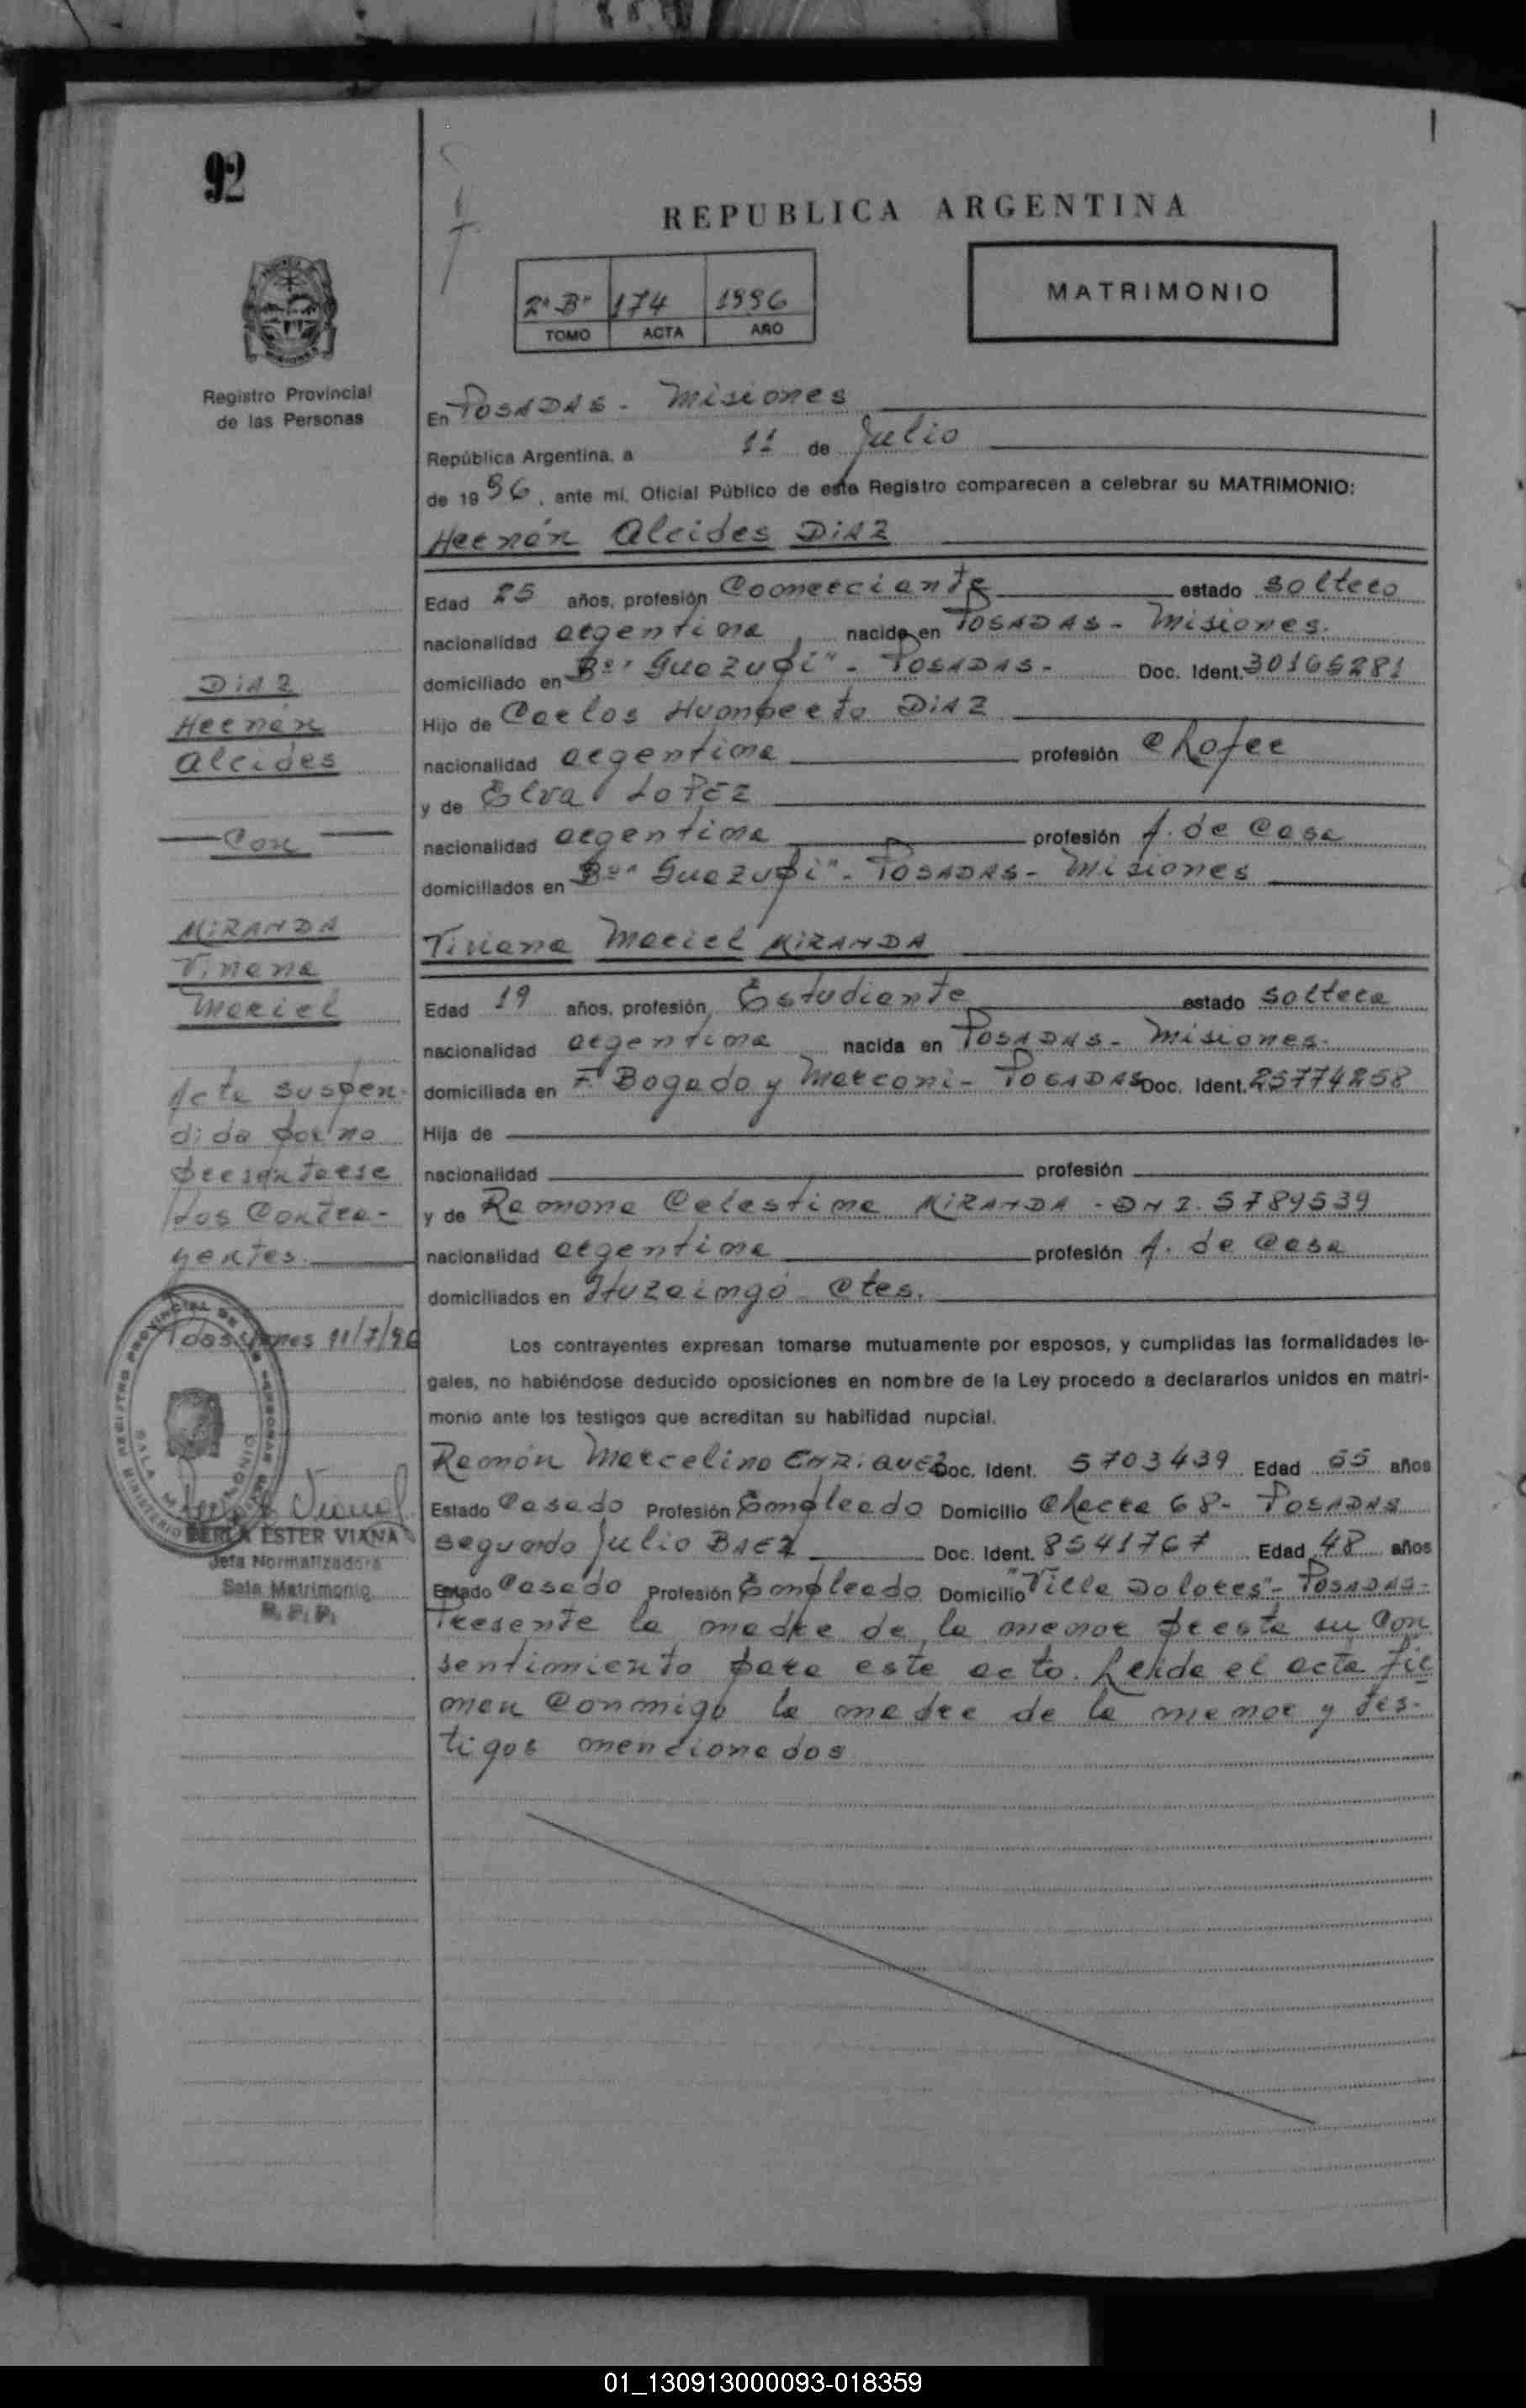 92
REPUBLICA ARGENTINA
2º "B" 174 1996
TOMO ACTA AÑO
MATRIMONIO
Registro Provincial
de las Personas
En POSADAS - Misiones
República Argentina, a 11 de Julio
de 1996, ante mí, Oficial Público de este Registro comparecen a celebrar su MATRIMONIO:
Hernán Alcides DIAZ
Edad 25 años, profesión Comerciante estado soltero
nacionalidad argentina, nacido en POSADAS - Misiones.
domiciliado en Bº "Guazupi" - POSADAS - Doc. Ident. 30165281
Hijo de Carlos Humberto DIAZ
nacionalidad argentina profesión Chofer
y de Elva LOPEZ
nacionalidad argentina profesión A. de Casa
domiciliados en Bº "Guazupi" - POSADAS - Misiones
Viviana Mariel MIRANDA
Edad 19 años, profesión Estudiante estado soltera
nacionalidad argentina nacida en POSADAS - Misiones.
domiciliada en F. Bogado y Marconi - POSADAS Doc. Ident. 25774258
Hija de
nacionalidad profesión
y de Ramona Celestina MIRANDA - DNI. 5789539
nacionalidad argentina profesión A. de Casa
domiciliados en Ituzaingó Ctes.
Los contrayentes expresan tomarse mutuamente por esposos, y cumplidas las formalidades le-
gales, no habiéndose deducido oposiciones en nombre de la Ley procedo a declararlos unidos en matri-
monio ante los testigos que acreditan su habilidad nupcial.
Ramón Marcelino ENRIQUEZ Doc. Ident. 5703439 Edad 65 años
Estado Casado Profesión Empleado Domicilio Chacra 68 - POSADAS
segundo Julio BAEZ Doc. Ident. 8541767 Edad 48 años
Estado Casado Profesión Empleado Domicilio "Villa Dolores" - POSADAS -
Presente la madre de la menor presta su con
sentimiento para este acto. Leída el acta fir
man conmigo la madre de la menor y tes-
tigos mencionados
DIAZ
Hernán
Alcides
Con
MIRANDA
Viviana
Mariel
Acta suspen-
dida por no
presentarse
los Contra-
yentes.
11/7/96
PERLA ESTER VIANA
Jefa Normalizadora
Sala Matrimonio
R. P. P.
01_130913000093-018359